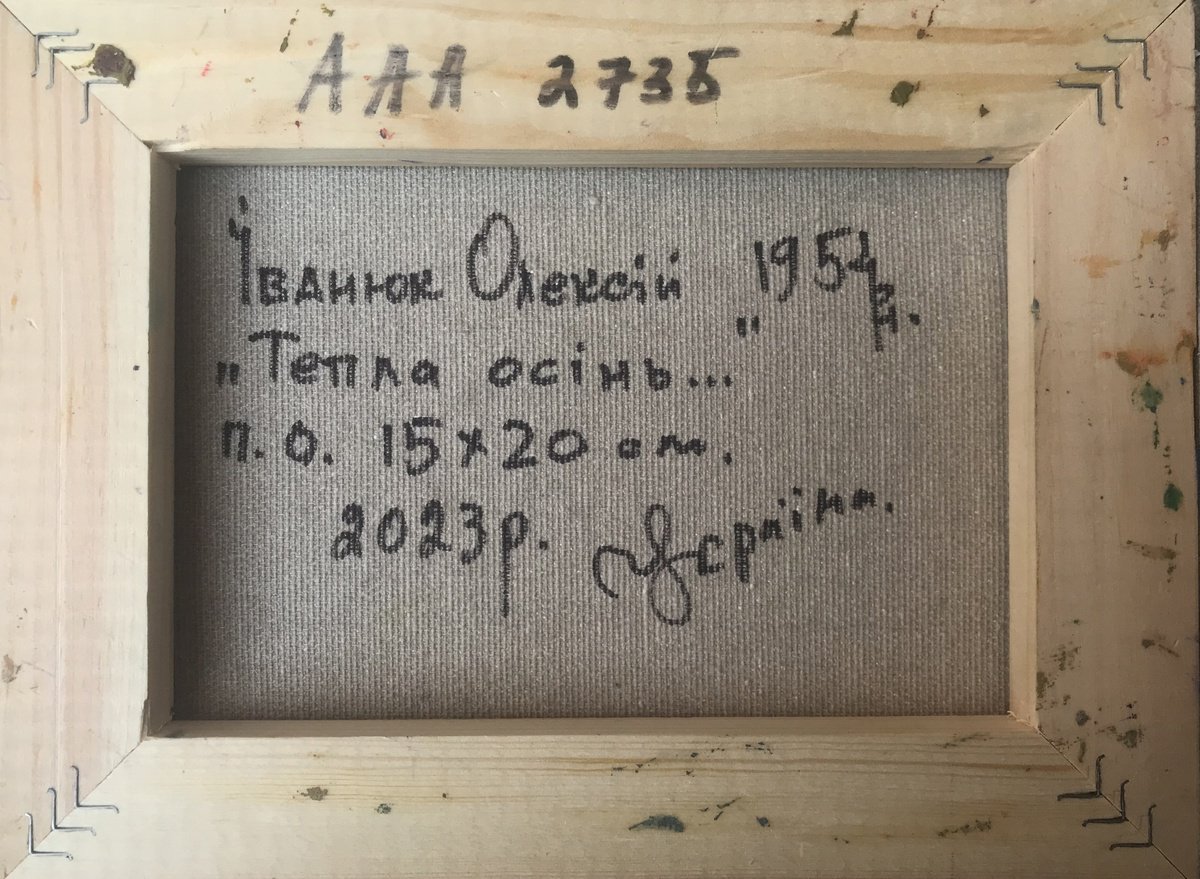 ААА 273Б
Іванюк Олексій 1954 р.н.
„Тепла осінь..."
п.о. 15х20 см.
2023р. Україна.